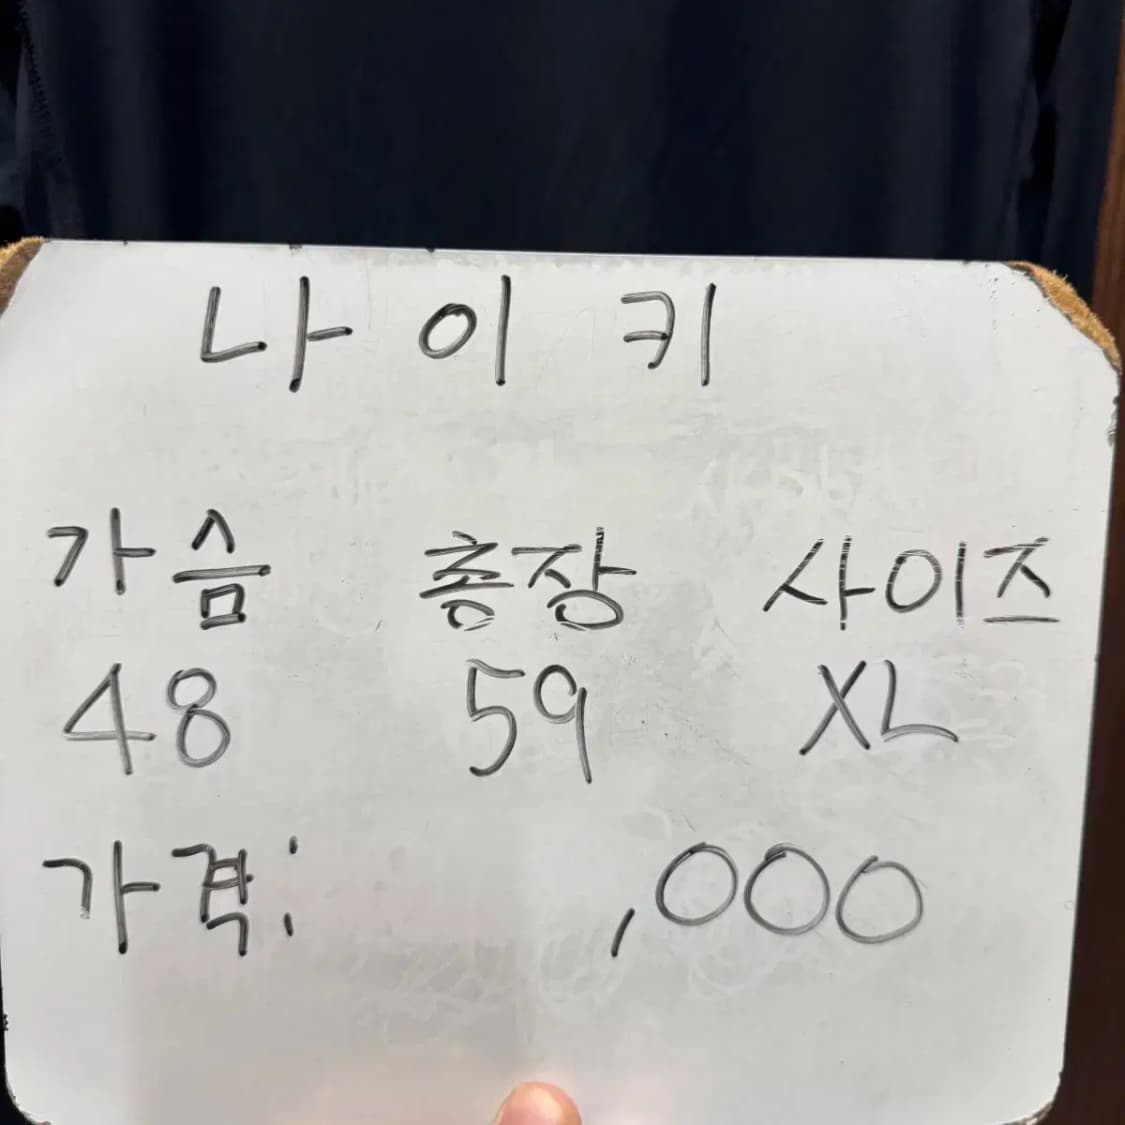 나이키
가슴 총장 사이즈
48 59 XL
가격: ,000